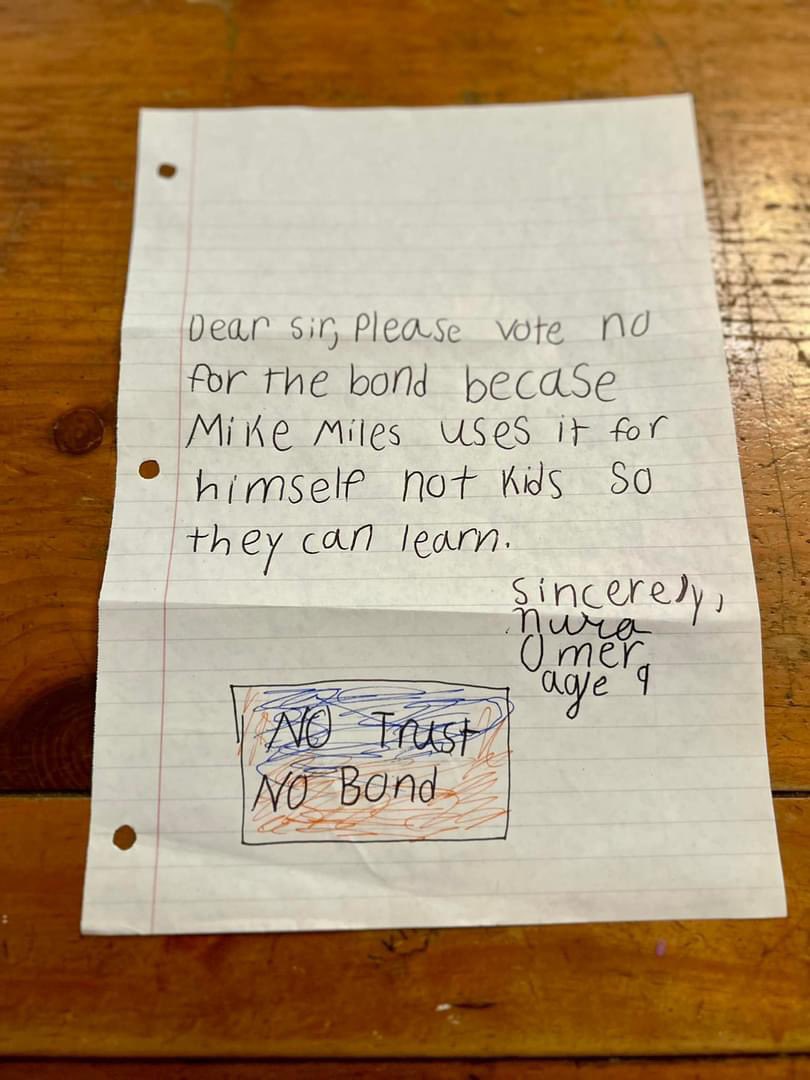 Dear sir, Please vote no
for the bond becase
Mike Miles uses it for
himself not kids so
they can learn.
sincerely,
nura
Omer,
age 9
NO Trust
NO Bond